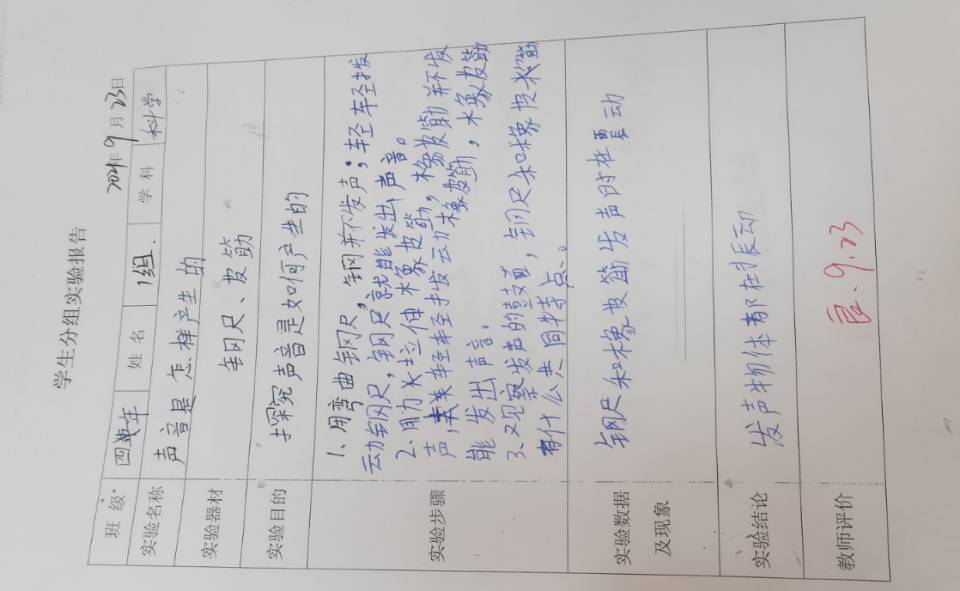 学生分组实验报告
2024年9月23日
班级 四年 姓名 1组. 学科 科学
实验名称 声音是怎样产生的
实验器材 钢尺、皮筋
实验目的 探究声音是如何产生的
实验步骤
1、用弯曲钢尺,钢并不发声;轻轻拨
动钢尺,钢尺就能发出声音。
2、用力拉伸橡皮筋,橡皮筋并不发
声,轻轻拨动橡皮筋,橡皮筋
能发出声音。
3、观察发声的鼓面,钢尺和橡皮筋
有什么共同特点。
实验数据
及现象
钢尺和橡皮筋发声时在震动
实验结论 发声物体都在振动
教师评价 良、9.23